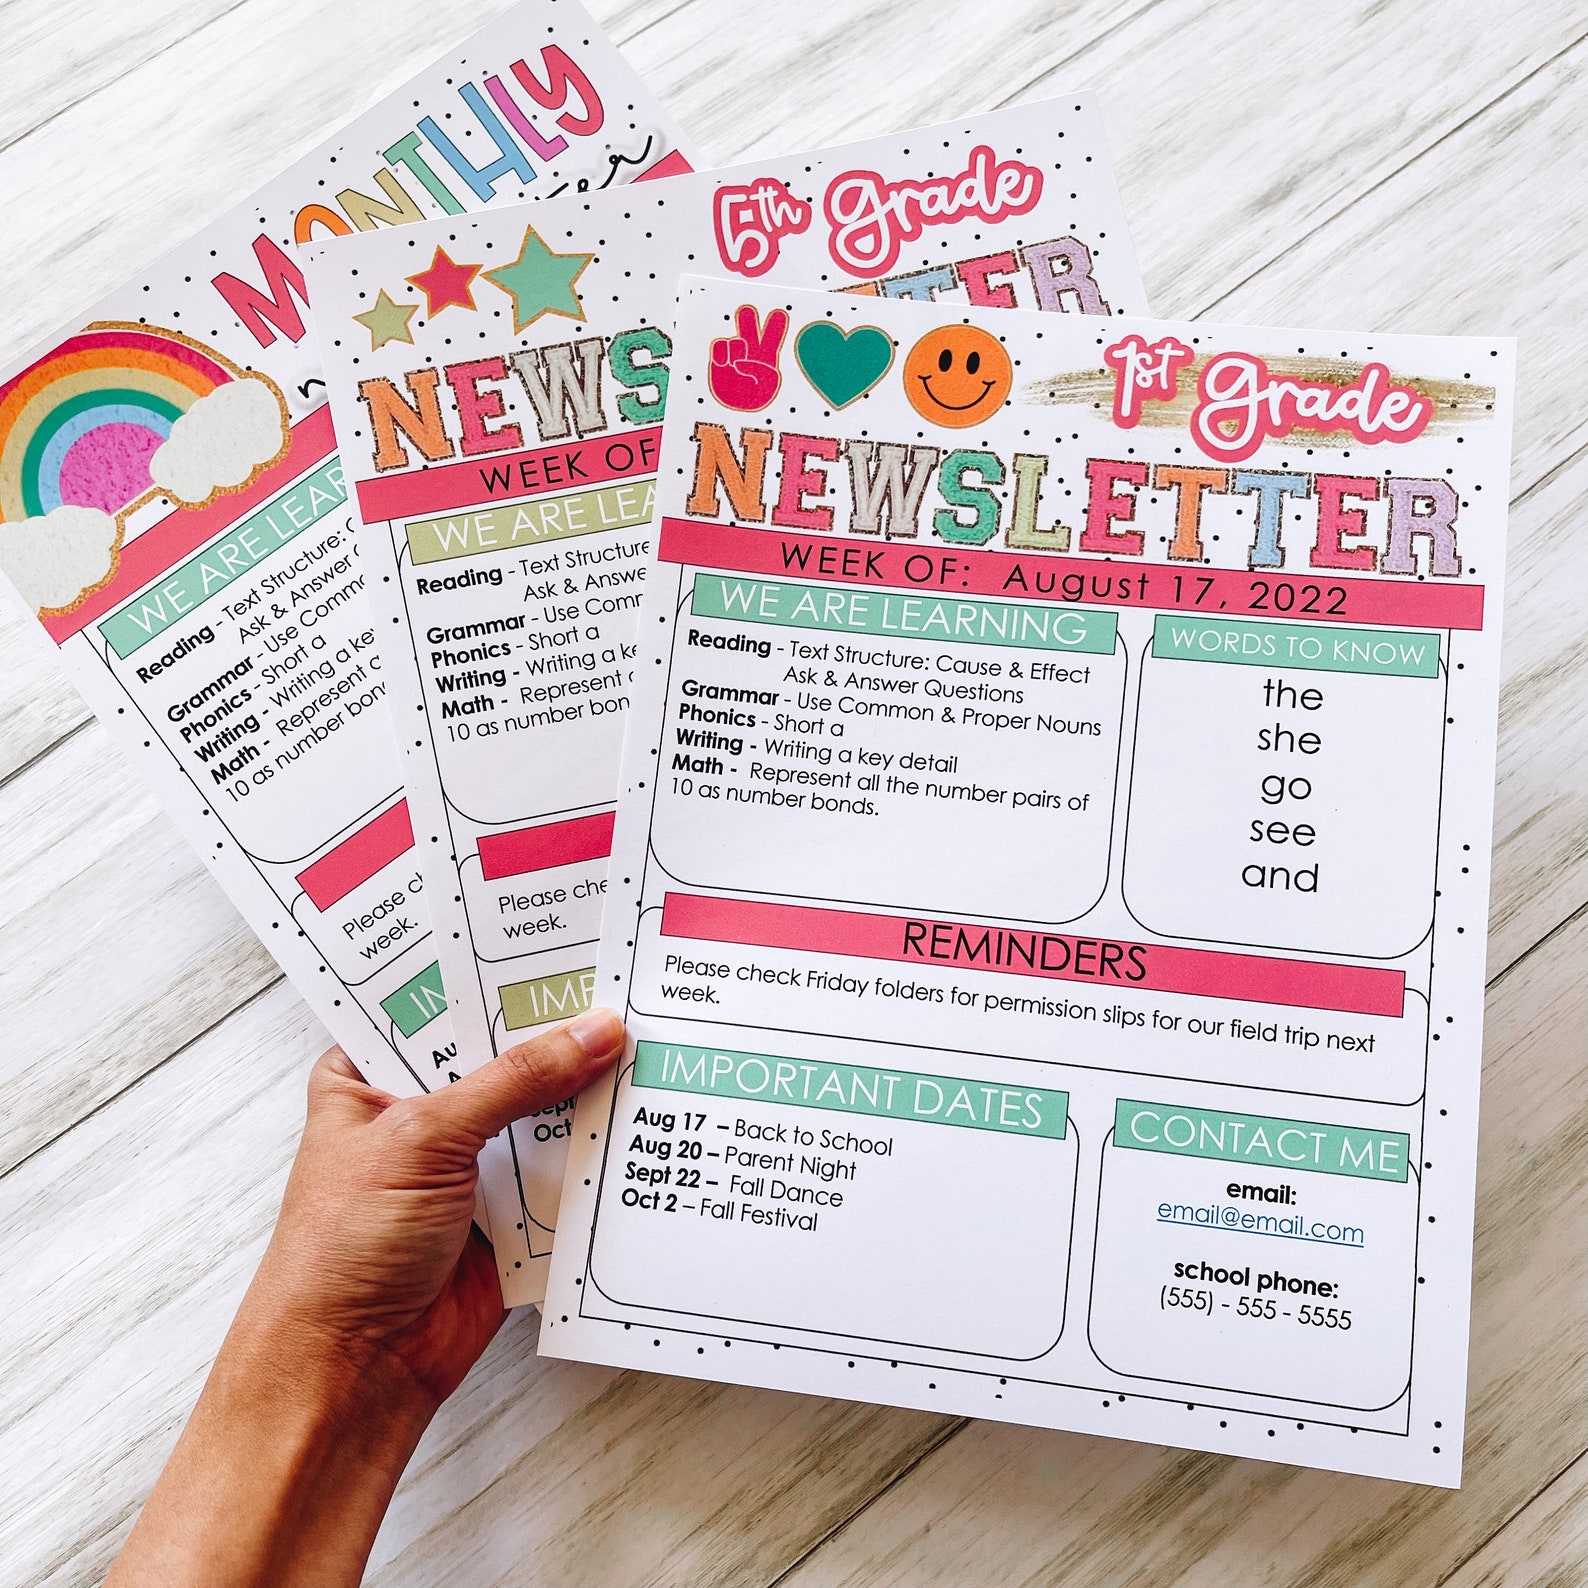 MONTHLY
WE ARE LEAR
Reading - Text Structure: C
Ask & Answer
Grammar - Use Commo
Phonics - Short a
Writing - Writing a key
Math - Represent a
10 as number bonds
Please ch
week.
IM
Au
A
Sept
Oct
5th grade
NEWS TER
WEEK OF
WE ARE LEA
Reading - Text Structure
Ask & Answe
Grammar - Use Comm
Phonics - Short a
Writing - Writing a ke
Math - Represent
10 as number bon
Please che
week.
IMP
1st grade
NEWSLETTER
WEEK OF: August 17, 2022
WE ARE LEARNING
Reading - Text Structure: Cause & Effect
Ask & Answer Questions
Grammar - Use Common & Proper Nouns
Phonics - Short a
Writing - Writing a key detail
Math - Represent all the number pairs of
10 as number bonds.
WORDS TO KNOW
the
she
go
see
and
REMINDERS
Please check Friday folders for permission slips for our field trip next
week.
IMPORTANT DATES
Aug 17 – Back to School
Aug 20 – Parent Night
Sept 22 – Fall Dance
Oct 2 – Fall Festival
CONTACT ME
email:
email@email.com
school phone:
(555) - 555 - 5555